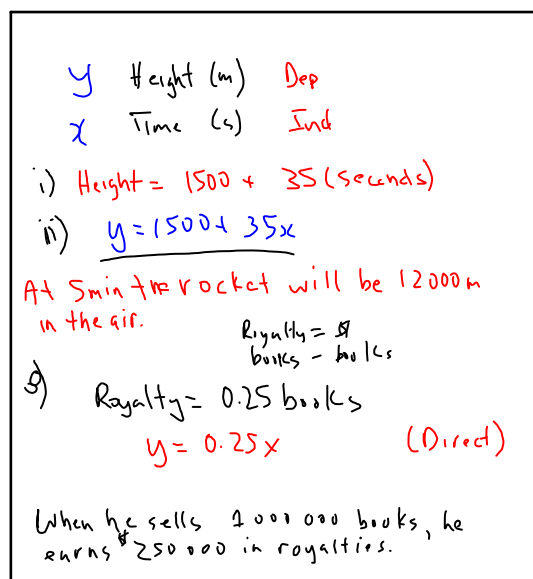 y Height (m) Dep
x Time (s) Ind
i) Height = 1500 + 35 (seconds)
ii) y = 1500 + 35x
At 5min the rocket will be 12000m
in the air.
Royalty = $
books - books
g) Royalty = 0.25 books
y = 0.25x (Direct)
When he sells 1000 000 books, he
earns $250 000 in royalties.